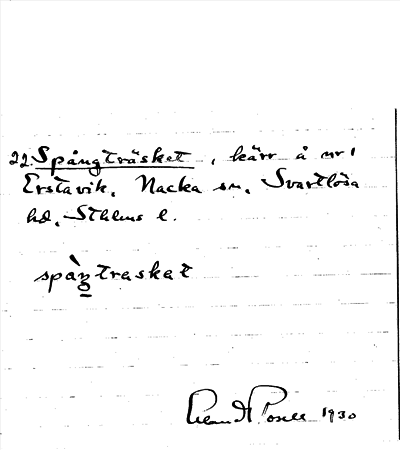 22. Spångträsket, kärr å nr 1
Erstavik, Nacka sn, Svartlösa
hd, Sthlms l.
spàŋtraskat
1930